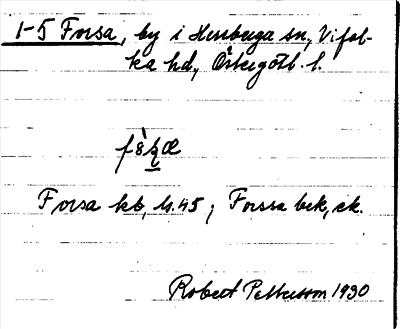 1-5 Forsa, by i Herrberga sn, Vifol-
ka hd, Östergötl. l.
Forsa kb, M.45; Forssa bek, ek.
Robert Pettersson 1930